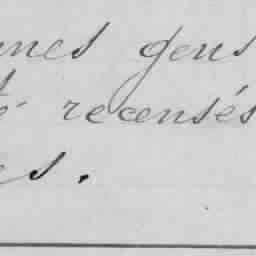 nnes gens
é recensés
es.